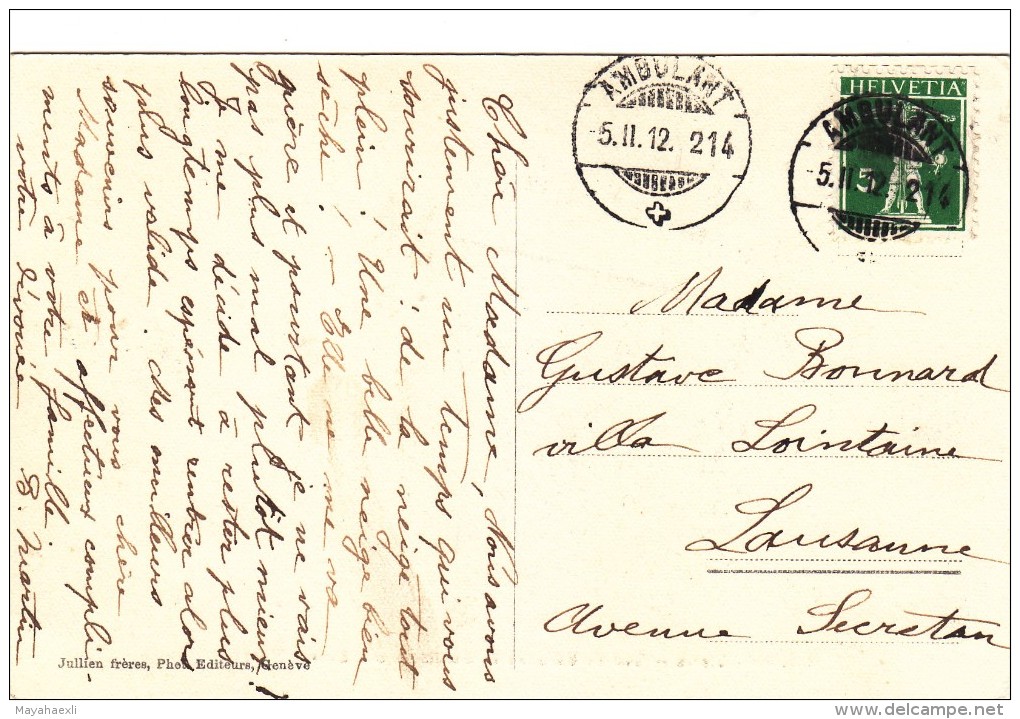 Chère Madame, Nous avons
justement un temps qui vous
sourirait : de la neige tout
plein ! Une belle neige bien
sèche ! – Elle ne me va
guère et pourtant je ne vais
pas plus mal, plutôt mieux !
Je me décide à rester plus
longtemps espérant rentrer alors
plus valide. Mes meilleurs
souvenirs pour vous chère
Madame et affectueux compli-
ments à votre famille
votre dévouée B. Martin
Jullien frères, Phot. Editeurs, Genève
AMBULANT
-5.II.12. 214
HELVETIA
5
AMBULANT
-5.II.12. 214
Madame
Gustave Bonnard
villa Lointaine
Lausanne
Avenue Secretan
Mayahaexli
delcampe.net